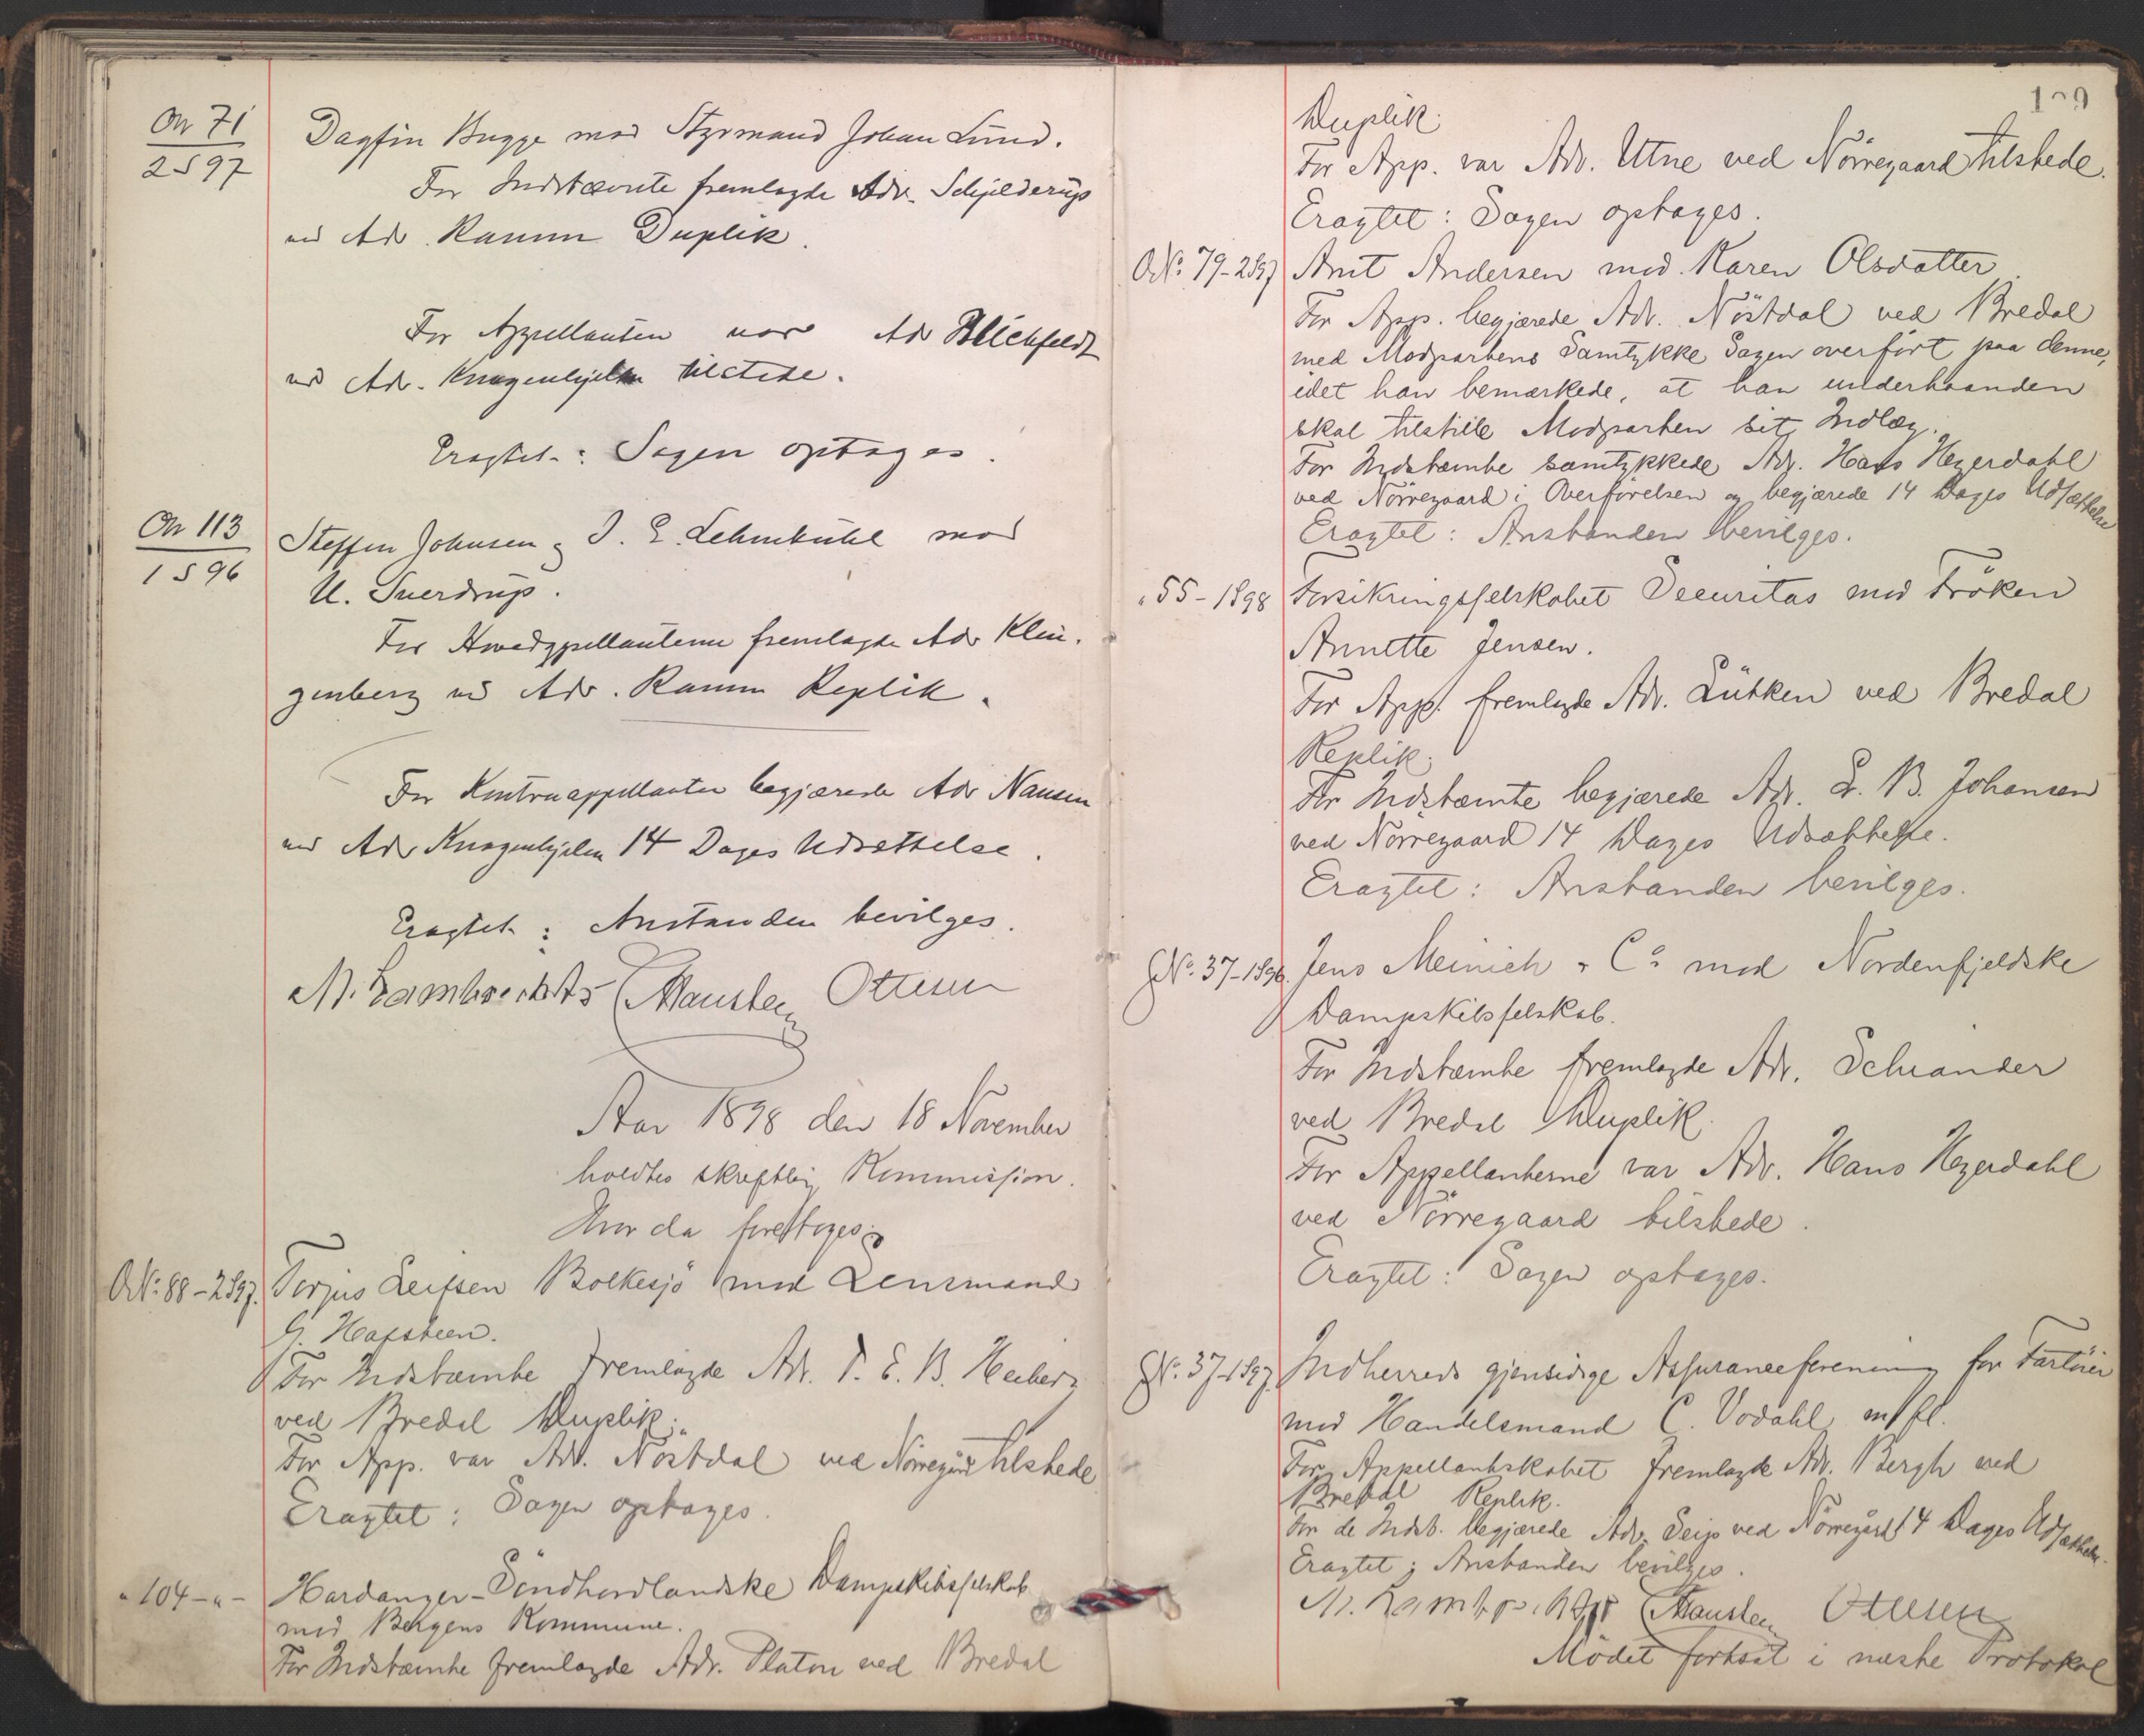 No 71
2 S 97
Dagfin Bugge mod Styrmand Johan Lund.
For Indstævnte fremlagde Adv. Schjelderup
ved Adv. Ramm Duplik.
For Appellanten var Adv Blichfeldt
ved Adv. Knagenhjelm tilstede.
Eragtet: Sagen optages.
No 113
1 S 96
Steffen Johnsen og J. E. Lehmkuhl mod
U. Sverdrup.
For Hovedappellanterne fremlagde Adv Klin-
genberg ved Adv. Ramm Replik.
For Kontraappellanten begjærede Adv Nansen
ved Adv Knagenhjelm 14 Dages Udsættelse.
Eragtet: Anstanden bevilges.
M. Lambrechts Mansteen Ottesen
Aar 1898 den 18 November
holdtes skriftlig Kommission.
Hvor da foretoges:
No. 88-2S97.
Torjus Leifsen Bolkesjö mod Lensmand
G. Hafsteen.
For Indstævnte fremlagde Adv. T. E. B.
ved Bredal Duplik.
For App. var Adv. Nöstdal ved Nörregård tilstede
Eragtet: Sagen optages.
" 104 - " -
Hardanger-Söndhordlandske Dampskibsselskab
mod Bergens Kommune.
For Indstævnte fremlagde Adv. Platou ved Bredal
Duplik.
For App. var Adv. Utne ved Nörregaard tilstede.
Eragtet: Sagen optages.
No. 79-2S97
Anit Andersen mod Karen Olsdatter.
For App. begjærede Adv. Nöstdal ved Bredal
med Modpartens Samtykke Sagen overfört paa denne,
idet han bemærkede, at han underhaanden
skal tilstille Modparten sit Indlæg.
For Indstævnte samtykkede Adv. Hans Heyerdahl
ved Nörregaard i Overförelsen og begjærede 14 Dages Udsættelse
Eragtet: Anstanden bevilges.
" 55 - 1S98
Forsikringsselskabet Securitas mod Fröken
Annette Jensen.
For App. fremlagde Adv. Lütken ved Bredal
Replik.
For Indstævnte begjærede Adv. L. B. Johansen
ved Nörregaard 14 Dages Udsættelse.
Eragtet: Anstanden bevilges.
No. 37-1S96.
Jens Meinich & Co mod Nordenfjeldske
Dampskibsselskab.
For Indstævnte fremlagde Adv. Schiander
ved Bredal Duplik.
For Appellanterne var Adv. Hans Heyerdahl
ved Nörregaard tilstede.
Eragtet: Sagen optages.
No. 37-1S97
Indherreds gjensidige Assuranceforening for Fartöier
mod Handelsmand C. Vodahl m/fl.
For Appellantskabet fremlagde Adv. Bergh ved
Bredal Replik.
For de Indst. begjærede Adv. Seip ved Nörregård 14 Dages Udsættelse.
Eragtet: Anstanden bevilges.
M. Lambrechts Mansteen Ottesen
Mödet fortsat i næste Protokol